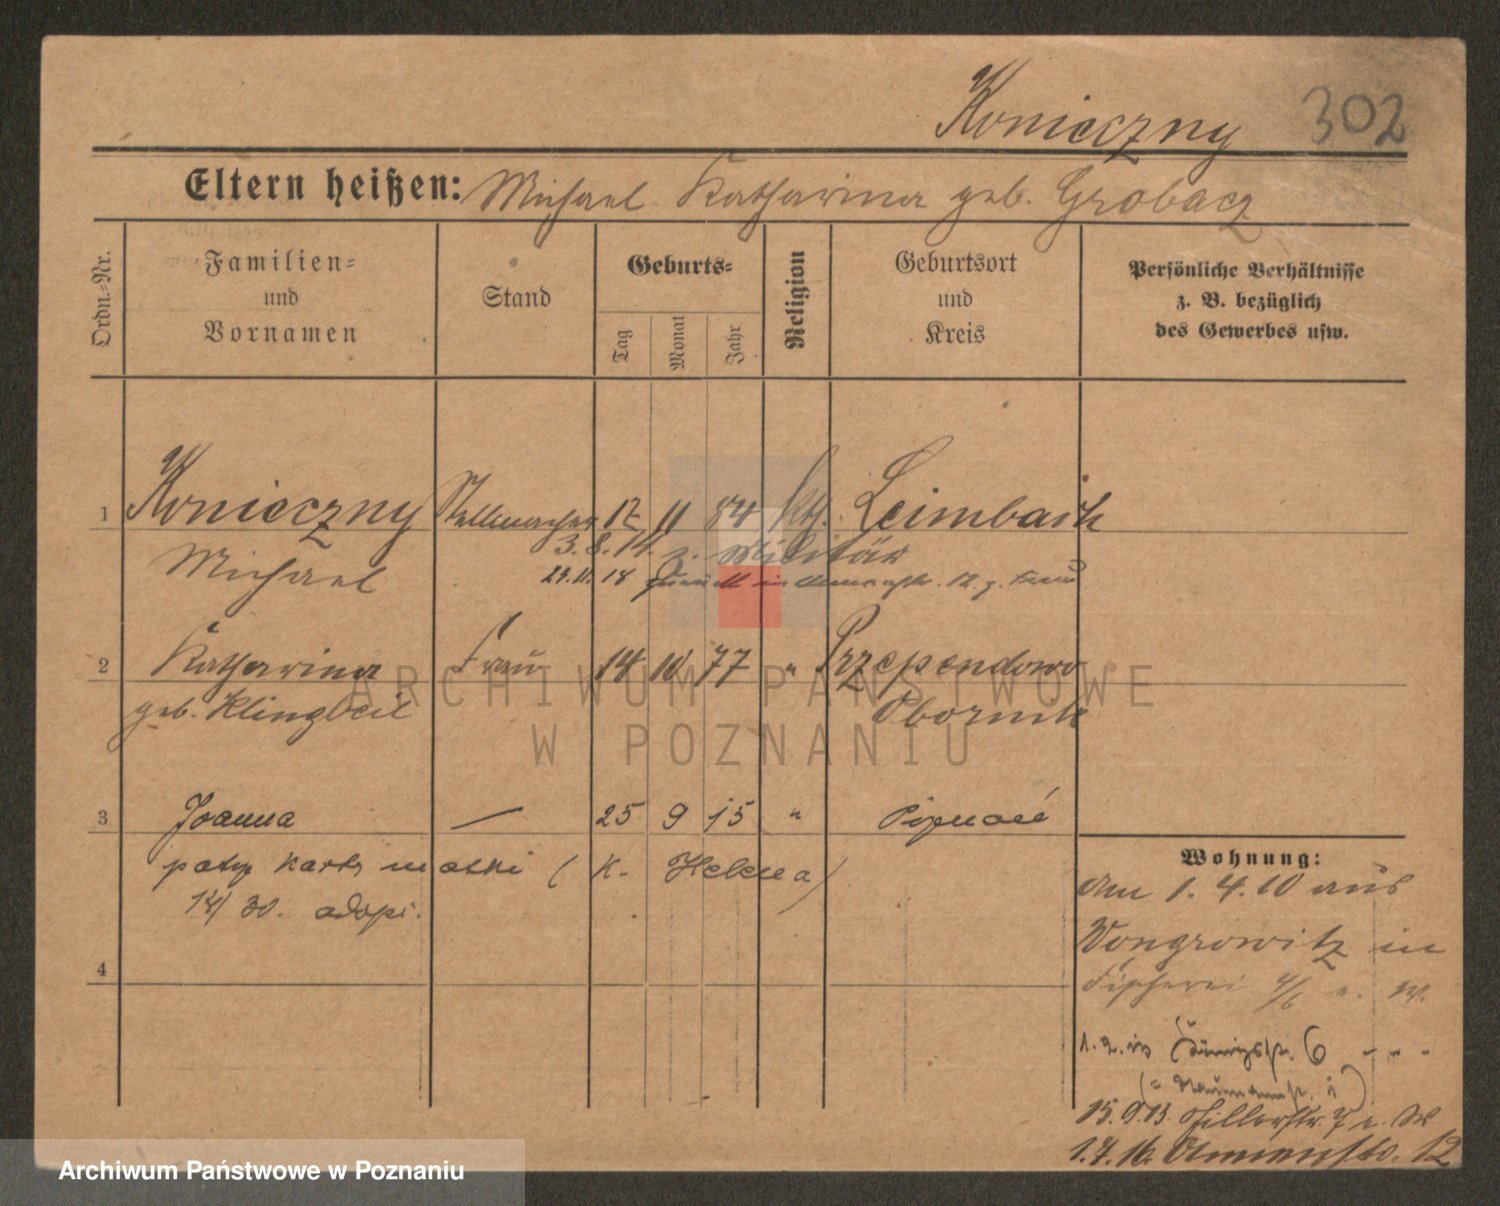 Konieczny 302
Eltern heißen: Michael Katharina geb. Grobacz
Ordn.-Nr.
Familien-
und
Vornamen
Stand
Geburts-
Tag
Monat
Jahr
Religion
Geburtsort
und
Kreis
Persönliche Verhältnisse
z. B. bezüglich
des Gewerbes usw.
1 Konieczny Stellmacher 17 11 84 kth. Leimbach
Michael 3. 8. 14. z. Militär
23. 11. 18 zurück in 12. z. Frau
2 Katharina Frau 14 10 77 " Przependowo
geb. Klingbeil Obornik
3 Joanna — 25 9 15 " Poznań
patrz karta matki (K. Helena)
30. adopt.
4
Wohnung:
am 1. 4. 10 aus
Wongrowitz in
Fischerei 4/6 e. W.
1. 2. in Königstr. 6 - - -
(= Naumannstr. 1)
15. 9. 13. Schillerstr. 7 e. W
1. 7. 16. 12
ARCHIWUM PAŃSTWOWE
W POZNANIU
Archiwum Państwowe w Poznaniu